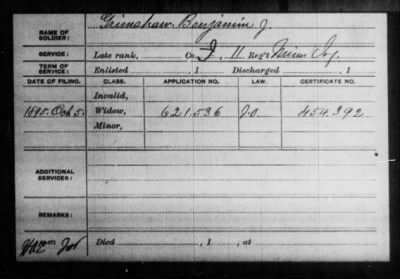 NAME OF SOLDIER: Grimshaw Benjamin J.
SERVICE: Late rank, Co. I, 11 Reg't Inf.
TERM OF SERVICE: Enlisted , 1 Discharged , 1
DATE OF FILING. CLASS. APPLICATION NO. LAW. CERTIFICATE NO.
Invalid,
1895. Oct 5. Widow, 621.536 454.392
Minor,
ADDITIONAL SERVICES:
REMARKS:
Died , 1 , at